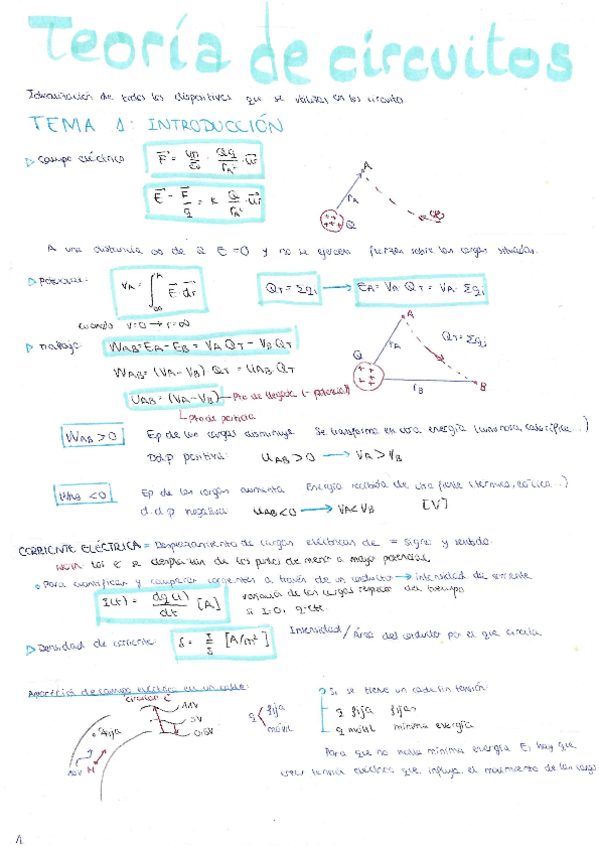 Teoría de circuitos
Idealización de todos los dispositivos que se utilizan en los circuitos
TEMA 1: INTRODUCCIÓN
▷ Campo eléctrico
A
r_A
Q
A una distancia ∞ de Q E=0 y no se ejercen fuerzas sobre las cargas situadas.
▷ Potencial: V_A = ∫_∞^A E⃗·dr⃗ Q_T = Σq_i → E_A = V_A·Q_T = V_A·Σq_i
cuando V=0 → r=∞
▷ Trabajo: W_AB = E_A - E_B = V_A Q_T - V_B Q_T
W_AB = (V_A - V_B) Q_T = U_AB·Q_T
U_AB = (V_A - V_B) → Pto de llegada (- potencial)
Pto de partida
A
Q_T = Σq_i
Q
r_A
r_B
B
W_AB > 0 Ep de las cargas disminuye Se transforma en otra energía (luminosa, calorífica...)
Ddp positiva: U_AB > 0 → V_A > V_B
W_AB < 0 Ep de las cargas aumenta Energía recibida de una fuente (térmica, eólica...)
d.d.p negativa: U_AB < 0 → V_A < V_B [V]
CORRIENTE ELÉCTRICA = Desplazamiento de cargas eléctricas de = signo y sentido.
NOTA: Los e⁻ se desplazan de los puntos de menor a mayor potencial.
Para cuantificar y comparar corrientes a través de un conductor → intensidad de corriente
I(t) = dq(t)/dt [A] variación de las cargas respecto del tiempo
si I=0, q=cte
▷ Densidad de corriente: δ = I/S [A/m²] Intensidad / Área del conductor por el que circula
Aparición de campo eléctrico en un cable:
q fija
móvil
Si se tiene un cable sin tensión:
q fija fijas
q móvil mínima energía
Para que no haya mínima energía E: hay que
crear tensión eléctrica que influya el movimiento de las cargas